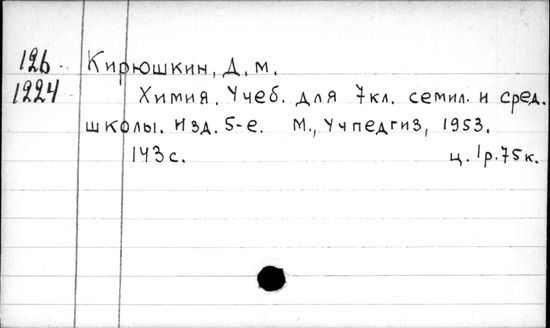 126 Кирюшкин, Д. М.
1224 Химия. Учеб. для 7кл. семил. и сред.
школы. Изд. 5-е. М., Учпедгиз, 1953.
143с. ц. 1р.75к.